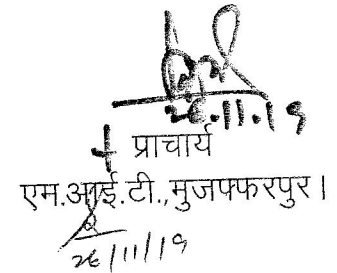 26.11.19
प्राचार्य
एम.आई.टी.,मुजफ्फरपुर।
26/11/19